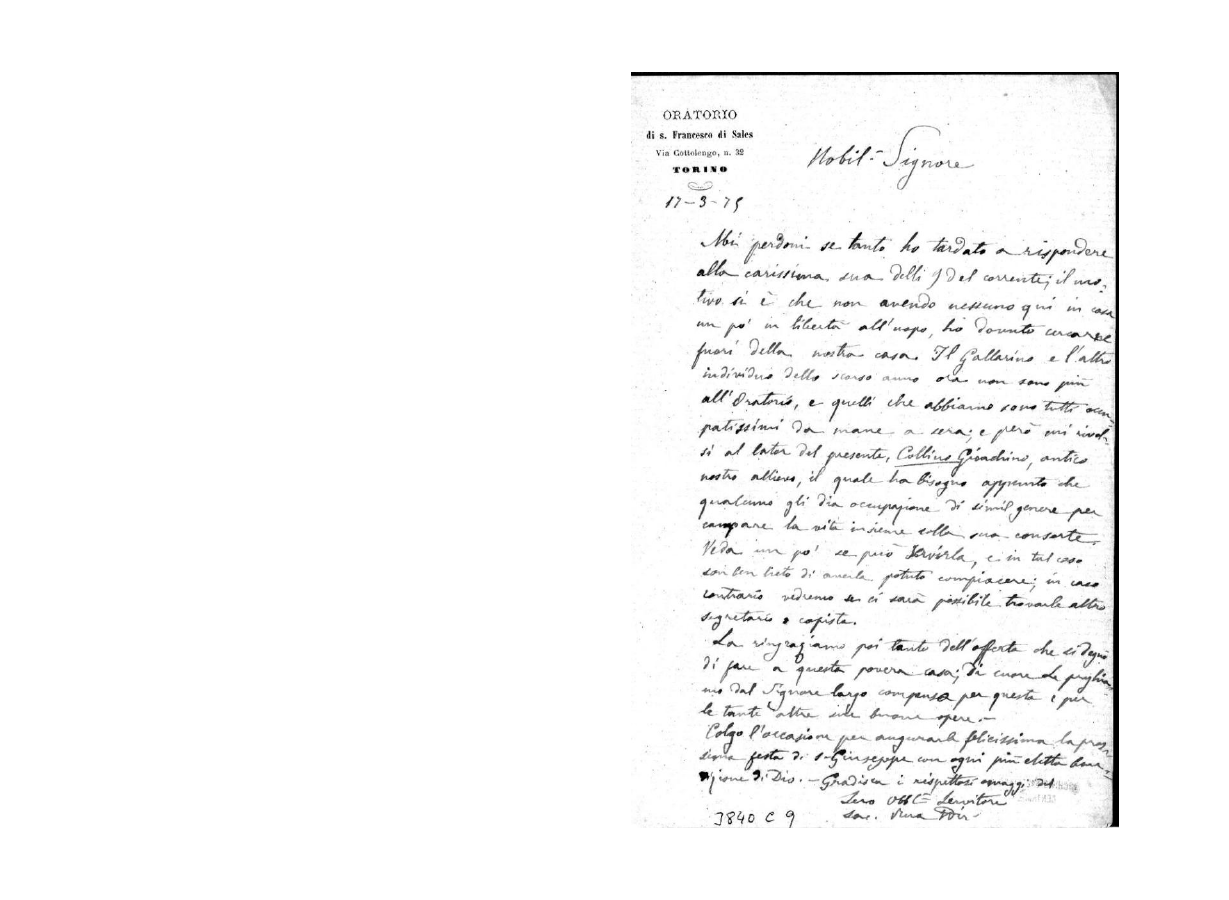 ORATORIO
di s. Francesco di Sales
Via Cottolengo, n. 32
TORINO
17-3-75
Nobil.e Signore
Mi perdoni se tanto ho tardato a rispondere
alla carissima sua delli 9 del corrente; il mo-
tivo si è che non avendo nessuno qui in casa
un po' in libertà all'uopo, ho dovuto cercare
fuori della nostra casa. Il Gallarino e l'altro
individuo dello scorso anno ora non sono più
all'Oratorio, e quelli che abbiamo sono tutti occu-
patissimi da mane a sera; e però mi rivol-
si al lator del presente, Collino Gioachino, antico
nostro allievo, il quale ha bisogno appunto che
qualcuno gli dia occupazione di simil genere per
campare la vita insieme colla sua consorte.
Veda un po' se può servirla, e in tal caso
son ben lieto di averla potuto compiacere; in caso
contrario vedremo se ci sarà possibile trovarle altro
segretario o copista.
La ringraziamo poi tanto dell'offerta che si degnò
di fare a questa povera casa; di cuore Le preghia-
mo dal Signore largo compenso per questa e per
le tante altre sue buone opere.-
Colgo l'occasione per augurarle felicissima la pros-
sima festa di s. Giuseppe con ogni più eletta bene-
dizione di Dio. - Gradisca i rispettosi omaggi del
Suo Obbl. Servitore
Sac. Rua
3840 C 9